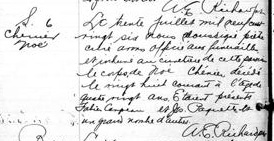 A.E. Richard ptre
S. 6
Chenier
Noé
Le trente juillet mil neuf cent
vingt six nous soussigné prêtre
curé avons officié aux funérailles
et inhumé au cimetière de cette paroisse
le corps de Noé Chenier, décédé
le vingt huit courant à l'âge de
quatre vingt ans. Etaient présents
et Jos. Paquette et
un grand nombre d'autres.
A.E. Richard ptre